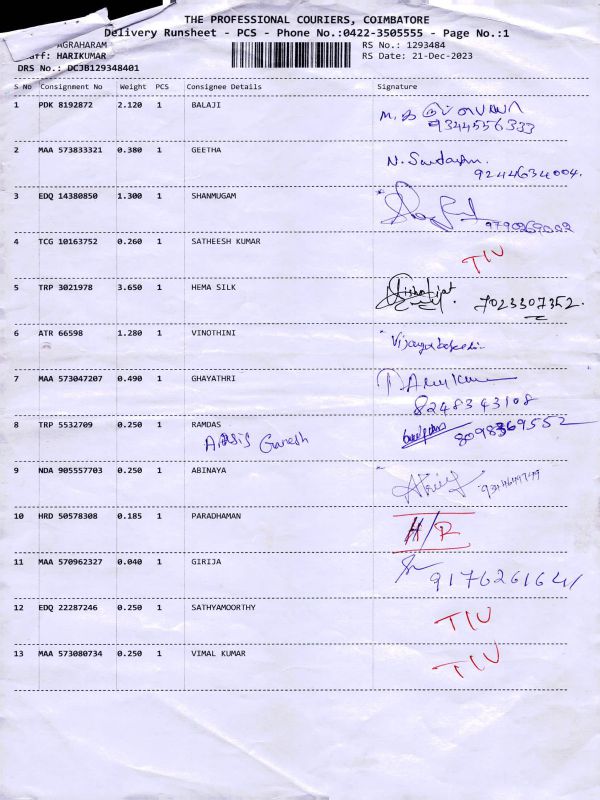 THE PROFESSIONAL COURIERS, COIMBATORE
Delivery Runsheet - PCS - Phone No.:0422-3505555 - Page No.:1
AGRAHARAM RS No.: 1293484
HARIKUMAR RS Date: 21-Dec-2023
DRS No.: DCJB129348401
S No Consignment No Weight PCS Consignee Details Signature
1 PDK 8192872 2.120 1 BALAJI
9344556333
2 MAA 573833321 0.380 1 GEETHA
9244634004.
3 EDQ 14380850 1.300 1 SHANMUGAM
4 TCG 10163752 0.260 1 SATHEESH KUMAR TIU
5 TRP 3021978 3.650 1 HEMA SILK 7023307352.
6 ATR 66598 1.280 1 VINOTHINI
7 MAA 573047207 0.490 1 GHAYATHRI
8248343108
8 TRP 5532709 0.250 1 RAMDAS 8098369552
Ganesh
9 NDA 905557703 0.250 1 ABINAYA
10 HRD 50578308 0.185 1 PARADHAMAN H/R
11 MAA 570962327 0.040 1 GIRIJA
9176261641
12 EDQ 22287246 0.250 1 SATHYAMOORTHY TIU
13 MAA 573080734 0.250 1 VIMAL KUMAR TIU